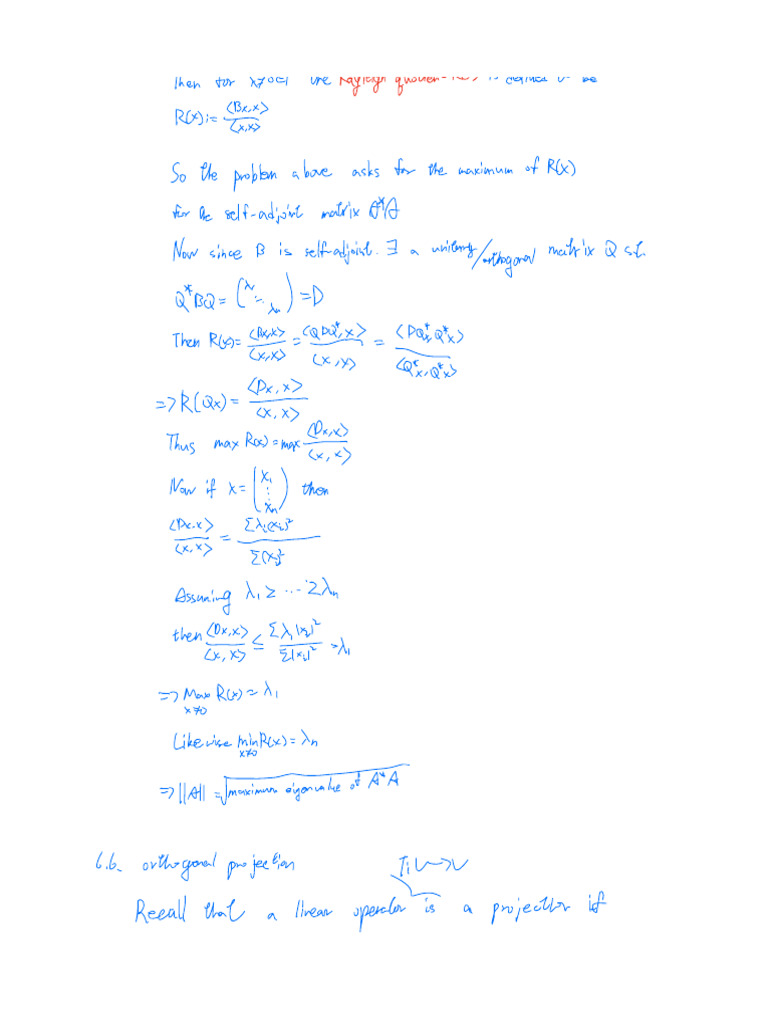 Then for x≠0 the Rayleigh quotient R(x) is defined to be
R(x):= ⟨Bx,x⟩/⟨x,x⟩
So the problem above asks for the maximum of R(x)
for the self-adjoint matrix A*A
Now since B is self-adjoint. ∃ a unitary/orthogonal matrix Q s.t.
Q*BQ = (λ₁ ⋱ λₙ) = D
Then R(x) = ⟨Bx,x⟩/⟨x,x⟩ = ⟨QDQ*x, x⟩/⟨x,x⟩ = ⟨DQ*x, Q*x⟩/⟨Q*x, Q*x⟩
=> R(Qx) = ⟨Dx, x⟩/⟨x, x⟩
Thus max R(x) = max ⟨Dx,x⟩/⟨x, x⟩
Now if x = (x₁ ⋮ xₙ) then
⟨Dx,x⟩/⟨x, x⟩ = Σλᵢ|xᵢ|²/Σ|xᵢ|²
Assuming λ₁ ≥ ... ≥ λₙ
then ⟨Dx,x⟩/⟨x, x⟩ ≤ Σλ₁|xᵢ|²/Σ|xᵢ|² = λ₁
=> Max R(x) = λ₁
x≠0
Likewise min R(x) = λₙ
x≠0
=> ||A|| = √maximum eigenvalue of A*A
6.6. orthogonal projection T: V→V
Recall that a linear operator is a projection if